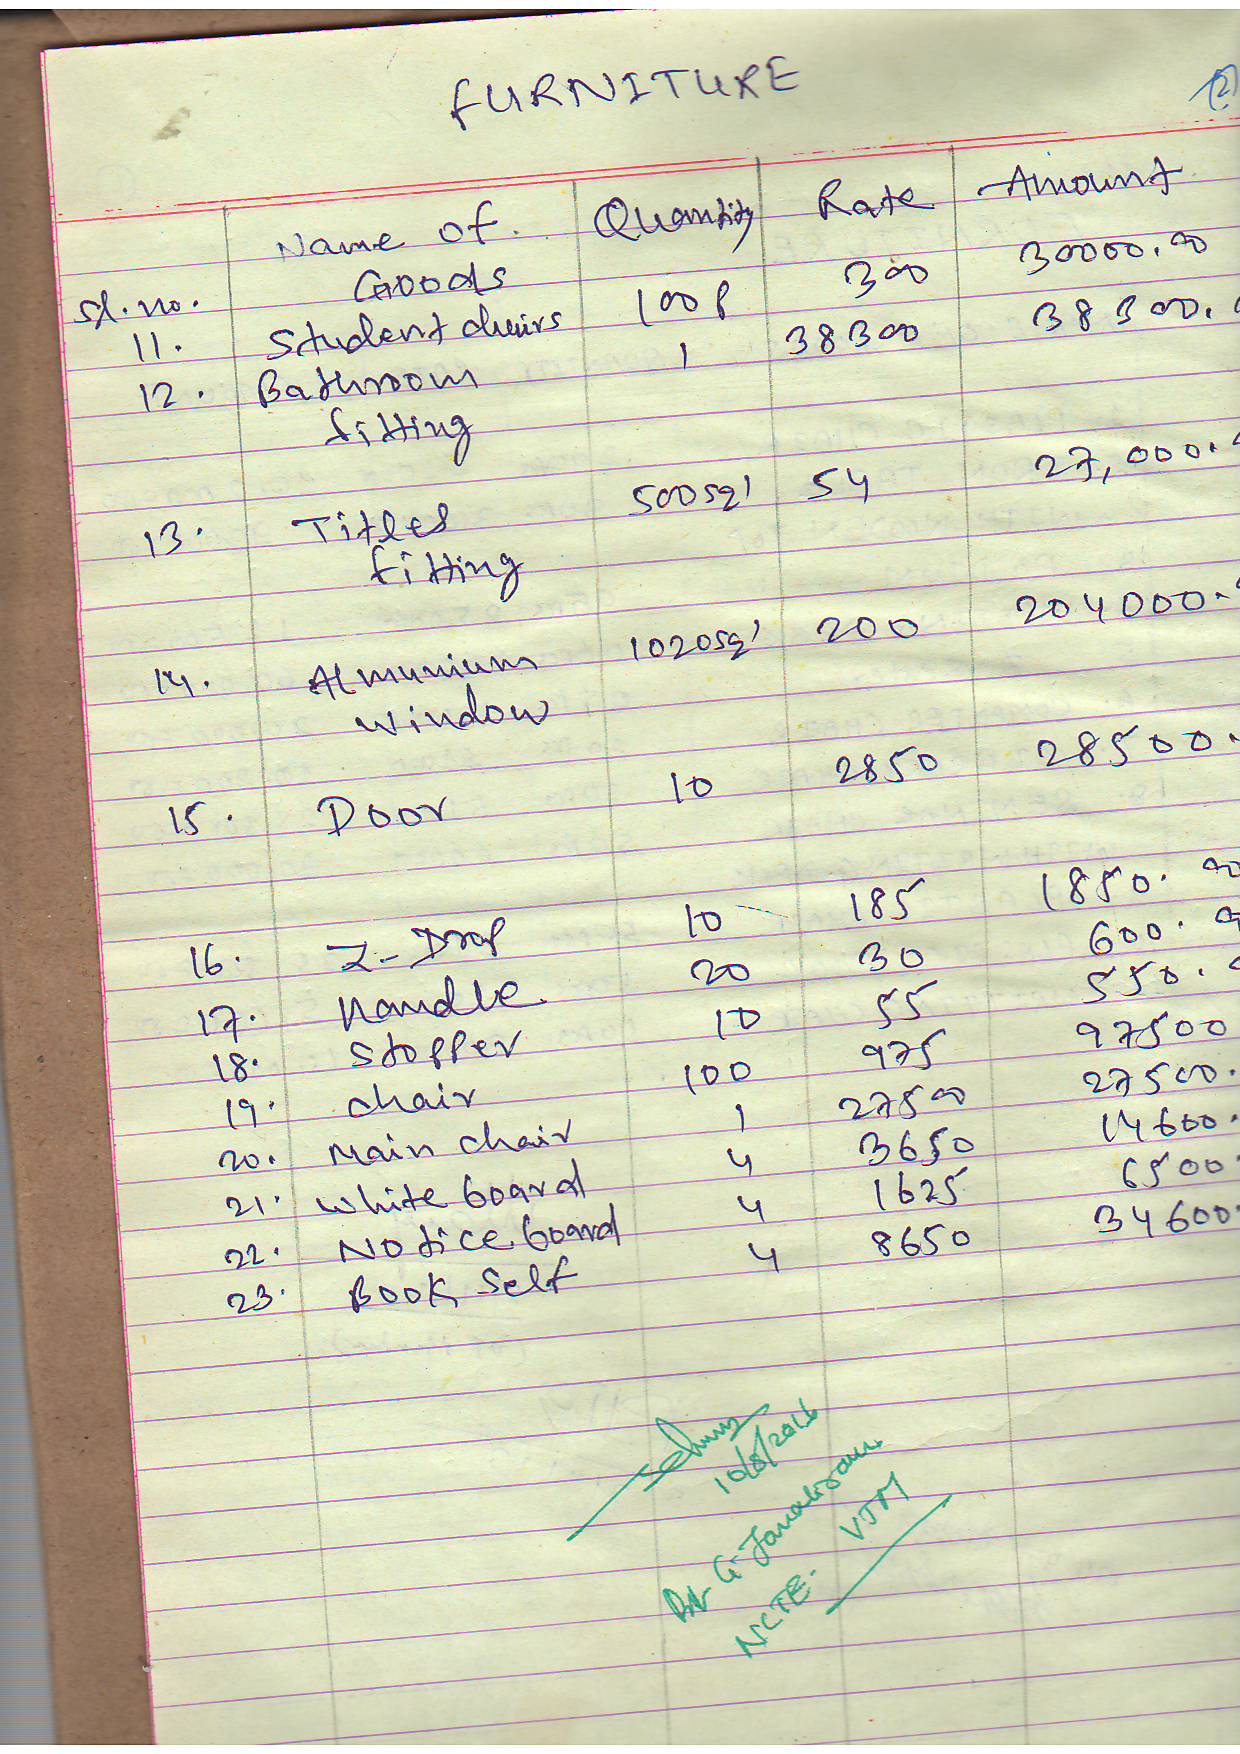 FURNITURE
Sl. no. Name of Goods Quantity Rate Amount
11. Student chairs 100 P 300 30000.00
12. Bathroom fitting 1 38300 38300.
13. Titles fitting 500sq' 54 27,000.
14. Almunium window 1020sq' 200 204000.
15. Door 10 2850 28500.
16. Z-Drop 10 185 1850.00
17. Handle 20 30 600.
18. Stopper 10 55 550.
19. chair 100 975 97500
20. Main chair 1 27500 27500.
21. White board 4 3650 14600.
22. Notice board 4 1625 6500.
23. Book self 4 8650 34600.
10/8/2016
NCTE. VTM